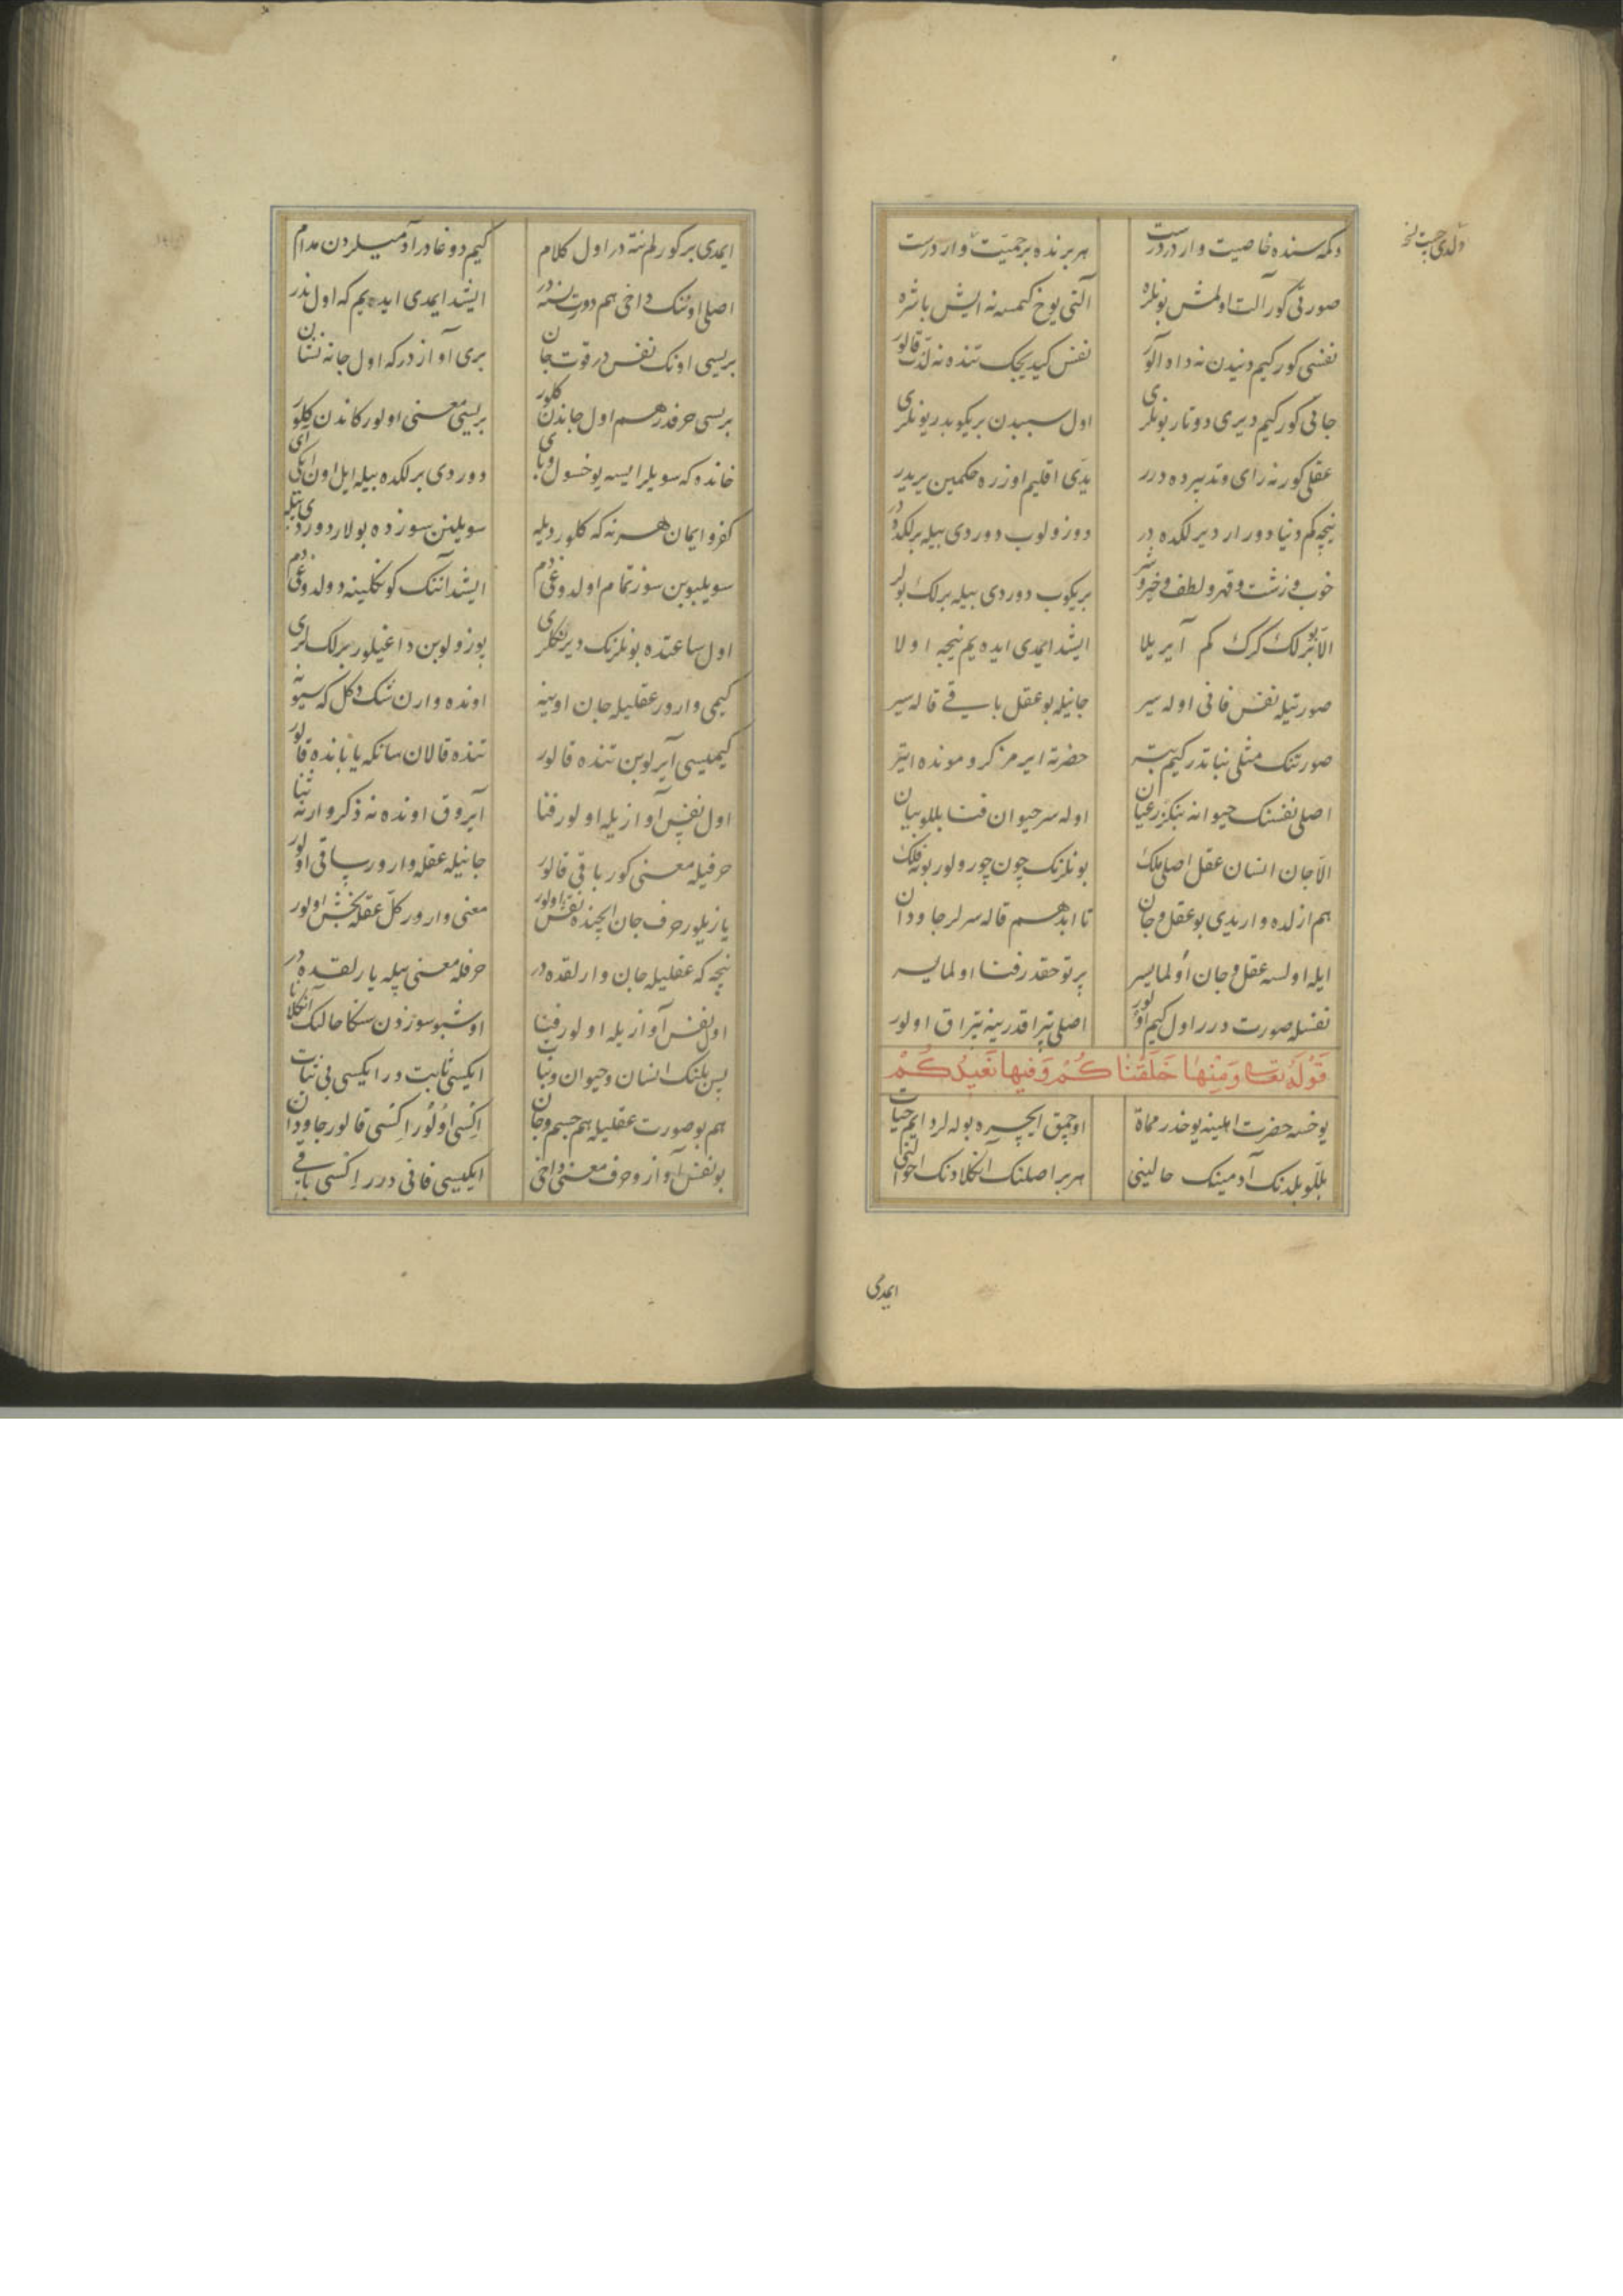 دکمه سنده خاصیت واردر درست هر برنده بر جمعیت واردرست
صورتی کور آلت اولمش بونلره آلتی یوخ کمسه نه ایش باشره
نفسی کور کیم دنیدن نه داد آلور نفس کیدیجک تنده نه لذت قالور
جانی کور کیم دیری دوتار بونلری اول سببدن بریکوبدر بونلری
عقلی کور نه رای و تدبیرده درر یدی اقلیم اوزره حکمین یریدر
نیجه کم دنیا دورار دیرلکده در دوزولوب دوردی بیله برلکده در
خوب و زشت و قهر و لطف و خیر و شر بریکوب دوردی بیله برلک بولر
الا بو برلک کرک کم آیریلا ایشد ایمدی ایده یم نیجه اولا
صورتیله نفس فانی اوله سیر جانیله بو عقل باقی قاله سیر
صورتنک مثلی نباتدر کیم بتر حضرته ایرمز کرو مونده ایتر
اصلی نفسنک حیوانه بنکزر عیان اوله سر حیوان فنا بللو بیان
الا جان انسان عقل اصلی ملک بونلرنک چون چورولور بو نه فلک
هم ازلده واریدی بو عقل و جان تا ابد هم قاله سرلر جاودان
ایله اولسه عقل و جان اولمایسر پرتو حقدر فنا اولمایسر
نفسله صورت درر اول کیم اولور اصلی تپراقدر ینه تپراق اولور
قوله تعالی ومنها خلقناکم وفیها نعیدکم
یوخسه حضرت اهلینه یوخدر مماة اوچمق ایچره بوله لر دایم حیات
بللو بلدنک آدمینک حالینی هر بر اصلنک آنکلادنک احوالنی
ایمدی
ایمدی بر کورلم نته در اول کلام کیم دوغادر آدمیلردن مدام
اصلی اونک داخی هم دورت نسنه در ایشد ایمدی ایده یم که اول نه در
بریسی اونک نفس در قوت جان بری آوازدر که اول جانه نشان
بریسی حرفدر هم اول جاندن کلور بریسی معنی اولور کاندن کلور
خانده که سویلر ایسه یوخسول و بای دوردی برلکده بیله ایل اون ایکی آی
کفر و ایمان هر نه که کلور دیله سویلنن سوزده بولار دوردی بیله
سویلیوبن سوز تمام اولدوغی دم ایشد اننک کونکلینه دولدوغی دم
اول ساعتده بونلرنک دیرنکلری بوزولوبن داغیلور برلکلری
کیمی وارور عقلیله جان اوینه اونده وارن تنک دکل که سیونه
کیمیسی آیرلوبن تنده قالور تنده قالان سانکه یابانده قالور
اول نفس آوازیله اولور فنا آیروق اونده نه ذکر وار نه ثنا
حرفیله معنی کور باقی قالور جانیله عقله وارور ساقی اولور
یازیلور حرف جان ایچنده نقش اولور معنی وارور کل عقله بخش اولور
نیجه که عقلیله جان وارلقده در حرفله معنی بیله یارلقده در
اول نفس آوازیله اولور فنا اوشبو سوزدن سکا حالک آنکلانا
پس بلنک انسان و حیوان و نبات ایکیسی ثابت در ایکسی بی ثبات
هم بو صورت عقلیله هم جسم و جان اکسی اولور اکسی قالور جاودان
بو نفس آواز و حرف معنی داخی ایکیسی فانی درر اکسی باقی